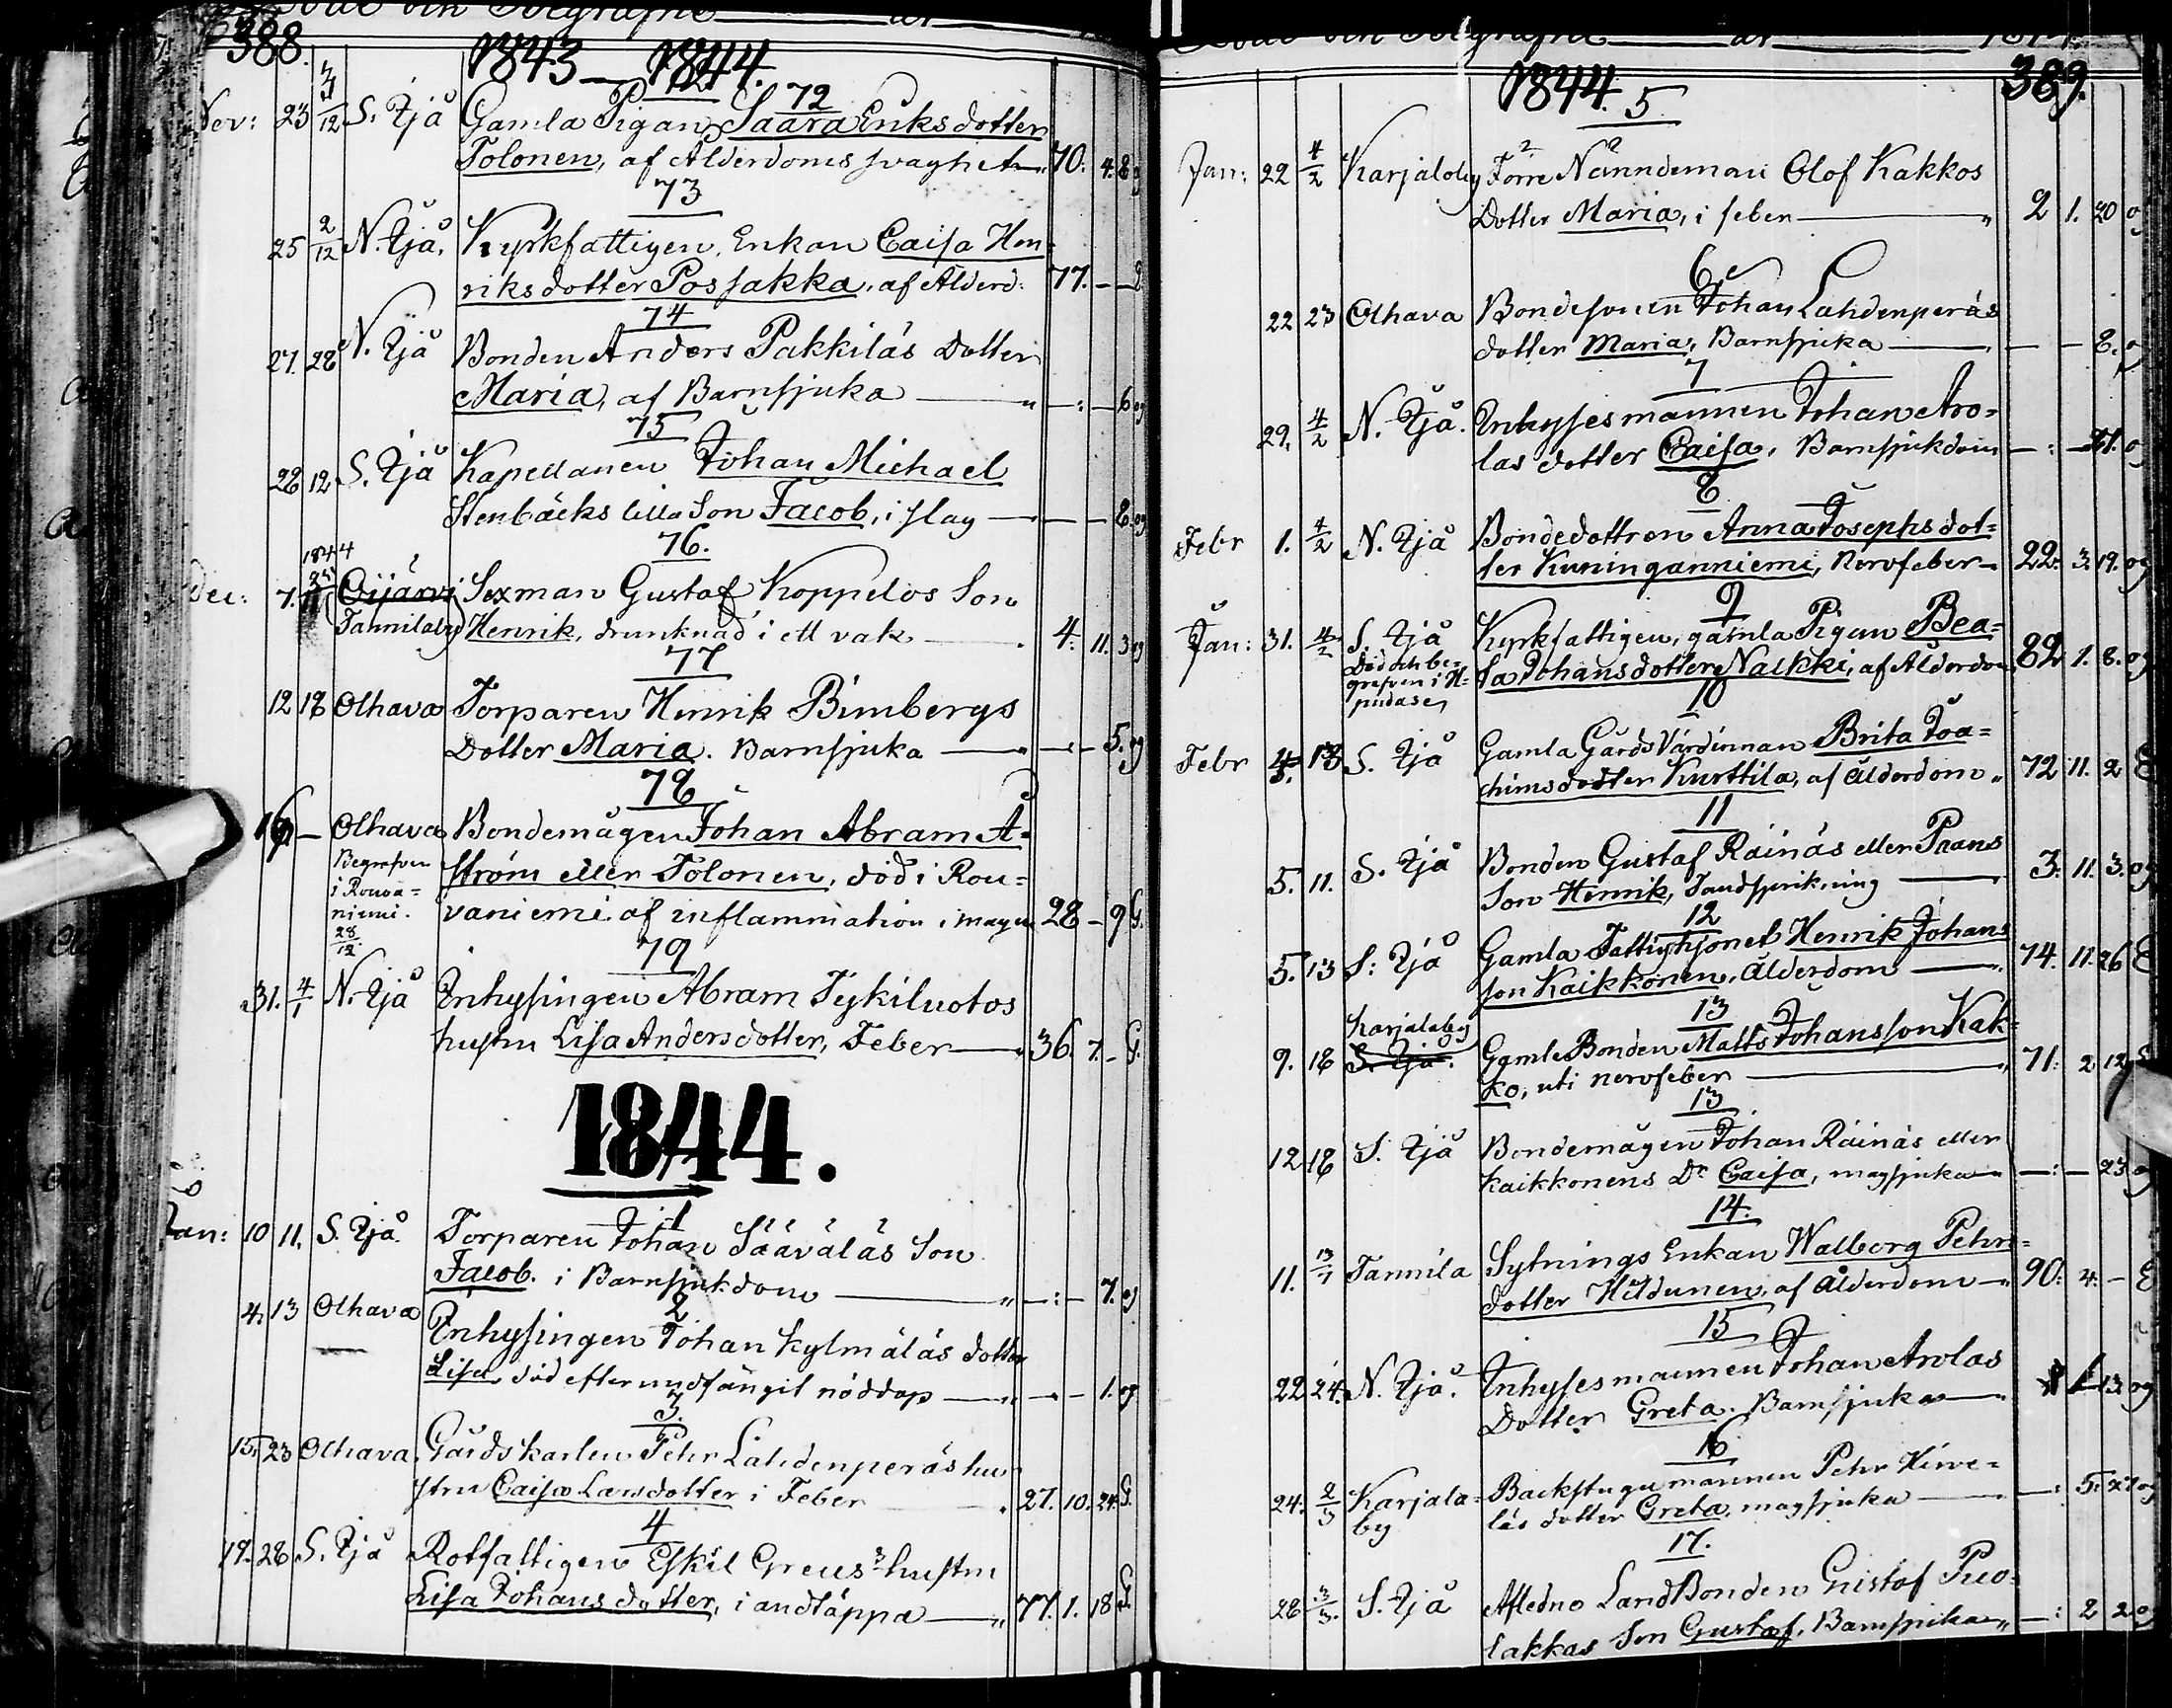 388.
1843–1844.
72
Nov: 23 3/12 S. Ijå Gamla Pigan Saara Eriksdotter
Tolonen, af Ålderdoms svaghet 70. 4. 8 og
73
25 2/12 N. Ijå. Kyrkfattigen, Enkan Caisa Hen=
riksdotter Possakka, af Ålderd: 77. – –
74
27. 28 N. Ijå Bonden Anders Pakkiläs Dotter
Maria, af Barnsjuka – : – 6 og
75
28 12 S. Ijå Kapellanen Johan Michael
Stenbäcks lilla Son Jacob, i slag – – 8. og
76.
1844
dec: 7. Oijärvi Sexman Gustaf Koppelos Son
Tannilaby Henrik, drunknad i ett vak 4. 11. 3 og
77
12 18 Olhava Torparen Henrik Bimbergs
Dotter Maria. Barnsjuka – : – 5. og
78
– Olhava Bondemågen Johan Abram Å=
Begrafven ström eller Tolonen, död i Rou=
i Rova=
niemi. vaniemi af inflammation i magen 28 – 9 G.
28/12
79
31. 4/1 N. Ijå Inhysingen Abram Tykiluotos
hustru Lisa Andersdotter, Feber 36. 7. – G.
1844.
1
Jan: 10 11. S. Ijå. Torparen Johan Sääväläs Son
Jacob. i Barnsjukdom – : – 7. og
2
4. 13 Olhava Inhysingen Johan Kylmäläs dotter
Lisa, död efter undfångit nöddop – – 1. og
3.
15. 23 Olhava. Gårdskarlen Pehr Lahdenperäs hu=
stru Caisa Larsdotter i Feber 27. 10. 24. G.
4
19. 28 S. Ijå Rotfattigen Eskil Greus hustru
Lisa Johansdotter, i andtäppa 77. 1. 18 G.
1844. 389.
5.
Jan: 22 4/2 Karjalaby Förre Nämndeman Olof Kakkos
Dotter Maria, i feber 2 1. 20 og
6
22 23 Olhava Bondesonen Johan Lahdenperäs
dotter Maria, Barnsjuka – – 8. og
7
29. 4/2 N. Ijå. Inhysesmannen Johan Aro=
las dotter Caisa, Barnsjukdom – : – 21. og
8
Febr 1. 4/2 N. Ijå Bondedottren Anna Josephsdot=
ter Kuninganniemi, Nervfeber 22. 3. 19. og
9
Jan: 31. 4/2 S. Ijå Kyrkfattigen, gamla Pigan Bea=
Död och be=
grafven i H=
pudase, ta Johansdotter Nalkki, af Ålderdom 82 1. 8. og
10
Febr 5. 13 S. Ijå Gamla Gårds Värdinnan Brita Joa=
chimsdotter Kurttila, af ålderdom 72 11. 2 E
11
5. 11. S. Ijå Bonden Gustaf Räinäs eller Paans
Son Henrik, Tandsprickning 3. 11. 3. og
12
5. 13 S: Ijå Gamla Fattighjonet Henrik Johans
son Kaikkonen, Ålderdom 74. 11. 26 E
13
9. 18 Karjalaby
S. Ijå. Gamle Bonden Matts Johansson Kak=
ko, uti nervfeber 71: 2 12
13
12 18 S. Ijå Bondemågen Johan Räinäs eller
Kaikkonens Dr Caisa, magsjuka – : – 23 og
14.
11. 13/1 Tannila Sytnings Enkan Walborg Pehrs=
dotter Hildunen, af ålderdom 90: 4. – E
15
22 24. N. Ijå. Inhysesmannen Johan Arolas
Dotter Greta. Barnsjuka 1 13 og
16
24. 2/3 Karjala=
by Backstugumannen Pehr Hirve=
läs dotter Greta, magsjuka – : 5. 27 og
17.
28 3/3. S. Ijå Afledne LandBonden Gustaf Puo=
lakkas Son Gustaf, Barnsjuka – : 2 2 og